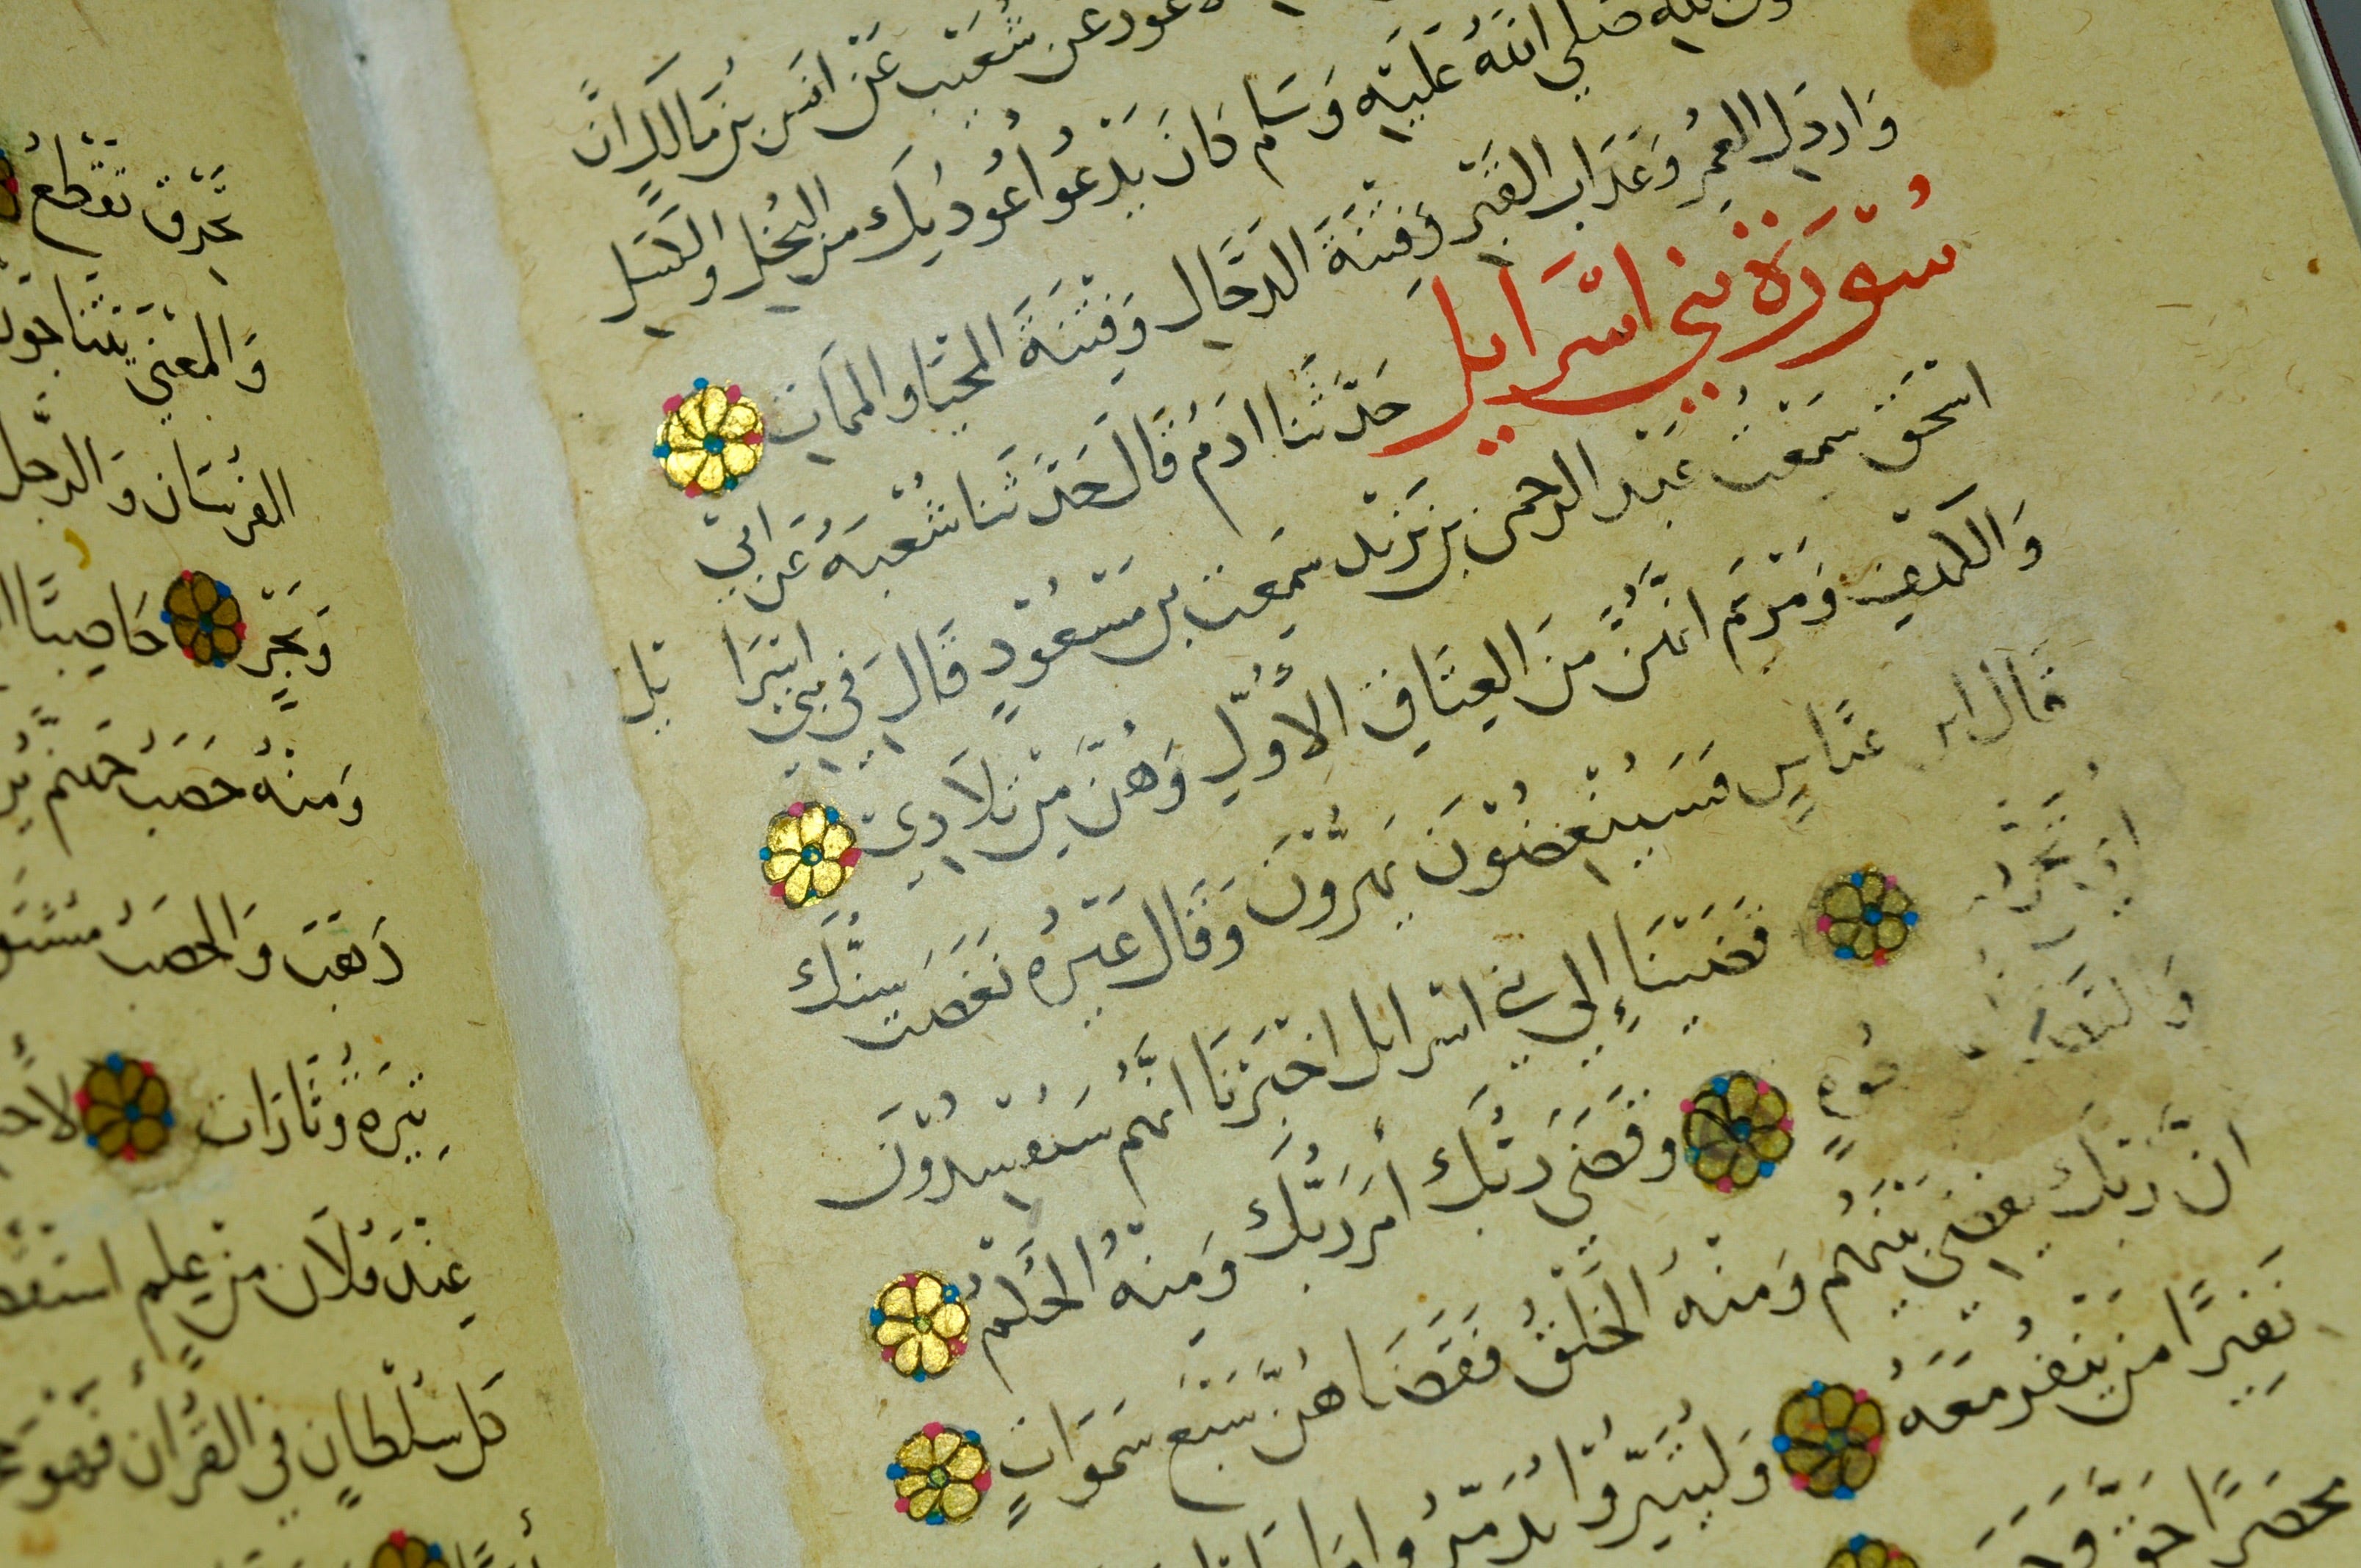 عن شعيب عن انس بن مالك ان
صلي الله عليه وسلم كان يدعوا اعوذ بك من البخل والكسل
وارذل العمر وعذاب القبر وفتنة الدجال وفتنة المحيا والممات
سورة بني اسرايل حدثنا ادم قال حدثنا شعبة عن ابي
اسحق سمعت عبد الرحمن بن يزيد سمعت بن مسعود قال في بني اسرا يل
والكهف ومريم انهن من العتاق الاول وهن من تلادي
قال ابن عباس فسينغضون يهزون وقال غيره نغضت سنك
قضينا إلي بني اسرايل اخبرنا انهم سيفسدون
وقضي ربك أمر ربك ومنه الحكم
ان ربك يقضي بينهم ومنه الخلق فقضاهن سبع سموات
نفيرا من ينفر معه وليتبروا يدمروا
محصرا حق
تحرق تقطع
والمعني
الفرسان والرجل
وتجر حاصبا
ومنه حصب جهنم
ذهب والحصب
تيرة وتارات
عند فلان من علم
كل سلطان في القرأن فهو